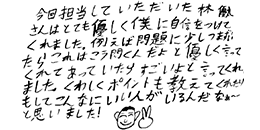 今回担当していただいた林 徹
さんはとても優しく僕に自信をつけて
くれました。例えば問題に少しつまがっ
たらこれはこう聞くんだよと優しく言って
くれてあっていたらすごいよと言ってくれ
ました。くわしくポイントも教えてくれたり
もしてこんなにいい人がいるんだなぁ〜
と思いました!